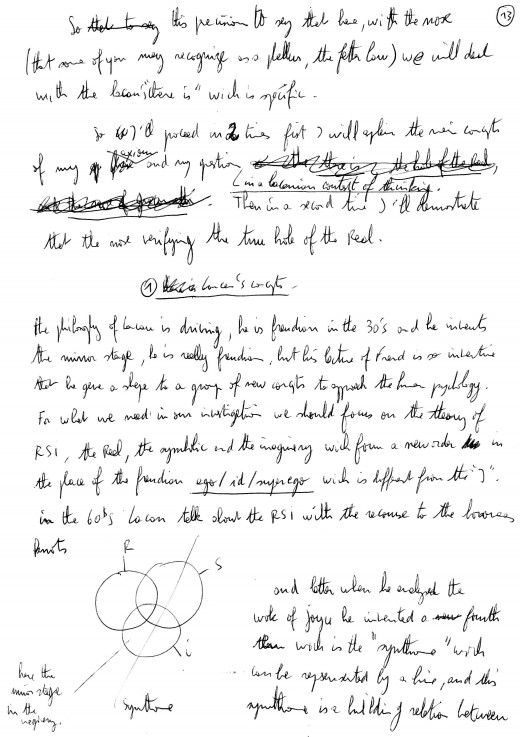 13
So that to say this precision to say that here, with the nose
(that some of you may recognize as a phallus, the father law) we will deal
with the lacan "there is" wich is specific.
So I'll proceed in 2 times first I will explain the main concepts
of my axiom and my question
(in a lacanian context of thinking.
Then in a second time I'll demonstrate
that the nose verifying the true hole of the Real.
1 Lacan's concepts
the philosophy of Lacan is driving, he is freudian in the 30's and he invents
the mirror stage, he is really freudian, but his lecture of Freud is so inventive
that he gave a shape to a group of new concepts to approach the human psychology.
For what we need in our investigation we should focus on the theory of
RSI, the Real, the symbolic and the imaginery wich form a new order in
the place of the freudian ego/id/superego wich is different from the "I".
in the 60's Lacan talk about the RSI with the recourse to the borromean
knots
R
S
i
and latter when he analyzed the
work of Joyce he invented a fourth
wich is the "synthome" wich
can be represented by a line, and this
synthome is a building relation between
here the
mirror stage
in the
imaginery.
Synthome